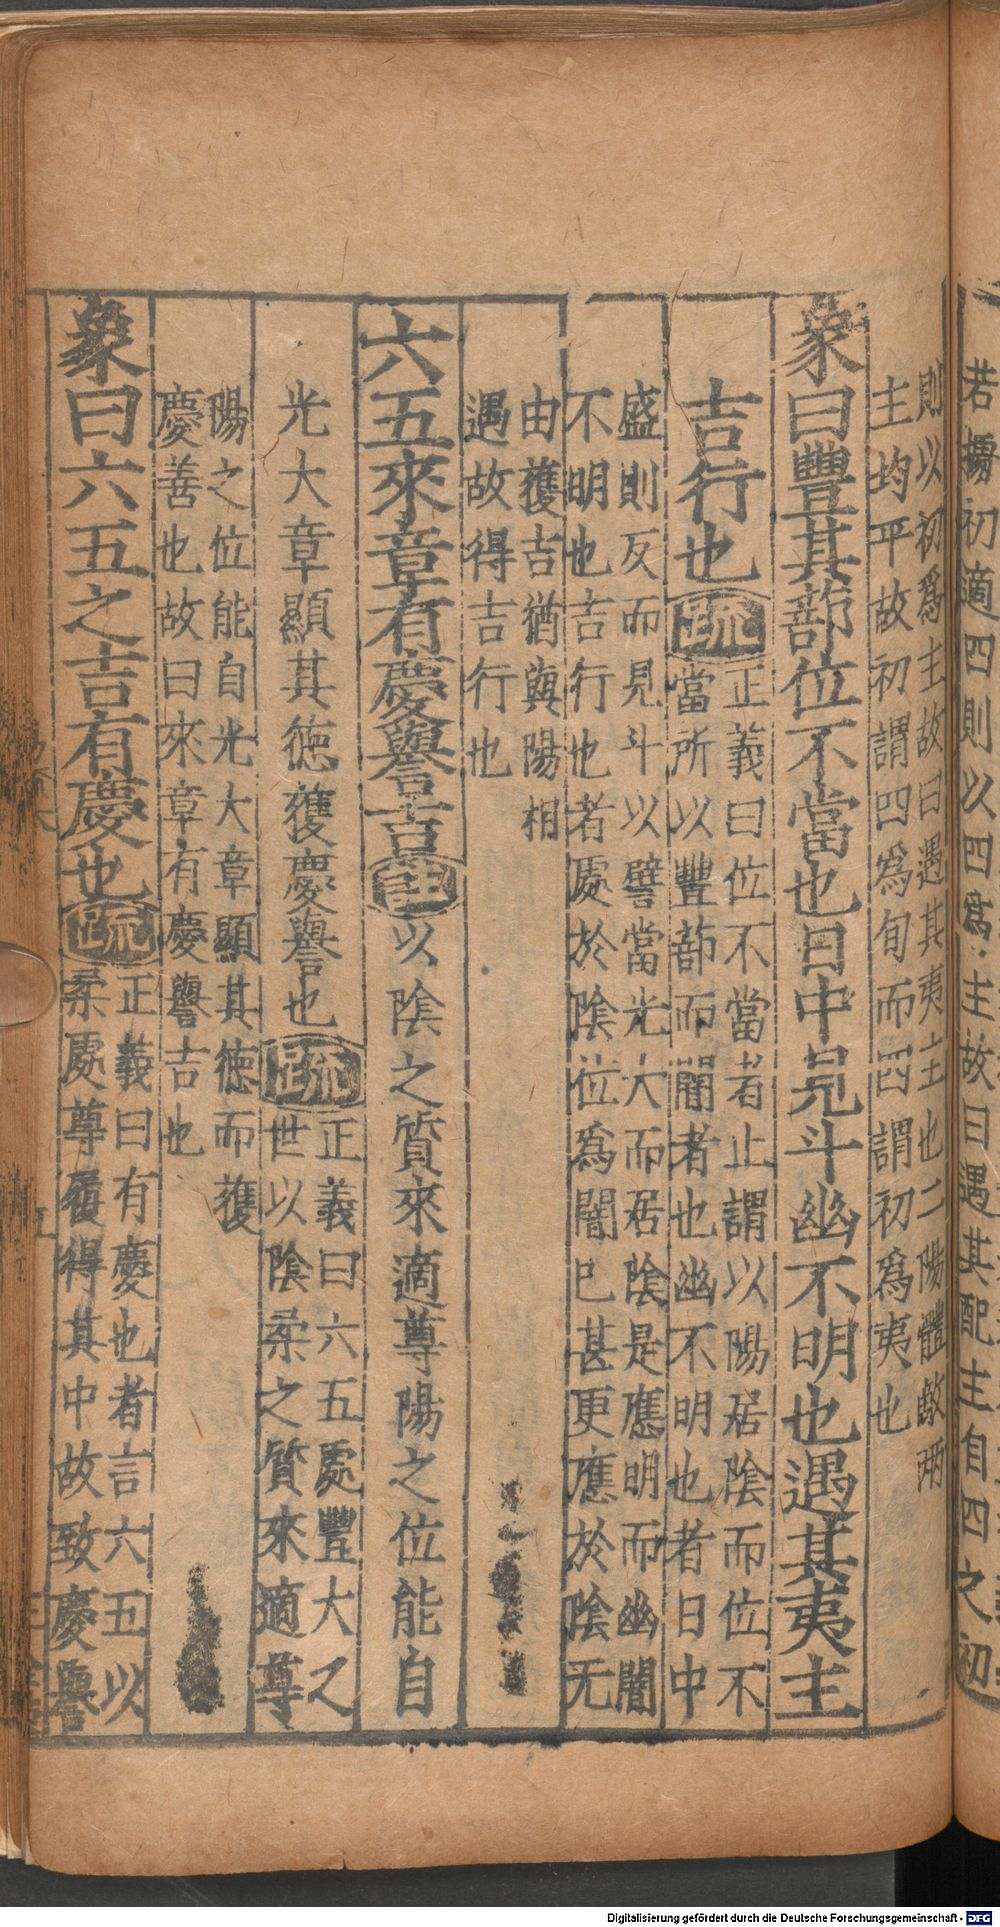 若據初適四則以四爲主故曰遇其配主自四之初
則以初爲主故曰遇其夷主也二陽體敵兩
主均平故初謂四爲旬而四謂初爲夷也
象曰豐其蔀位不當也日中見斗幽不明也遇其夷主
吉行也疏
正義曰位不當者止謂以陽居陰而位不
當所以豐蔀而闇者也幽不明也者日中
盛則反而見斗以譬當光大而居陰是應明而幽闇
不明也吉行也者處於陰位爲闇巳甚更應於陰无
由獲吉猶與陽相
遇故得吉行也
六五來章有慶譽吉註以陰之質來適尊陽之位能自
光大章顯其德獲慶譽也疏
正義曰六五處豐大之
世以陰柔之質來適尊
陽之位能自光大章顯其德而獲
慶善也故曰來章有慶譽吉也
象曰六五之吉有慶也疏
正義曰有慶也者言六五以
柔處尊履得其中故致慶譽
Digitalisierung gefördert durch die Deutsche Forschungsgemeinschaft - DFG